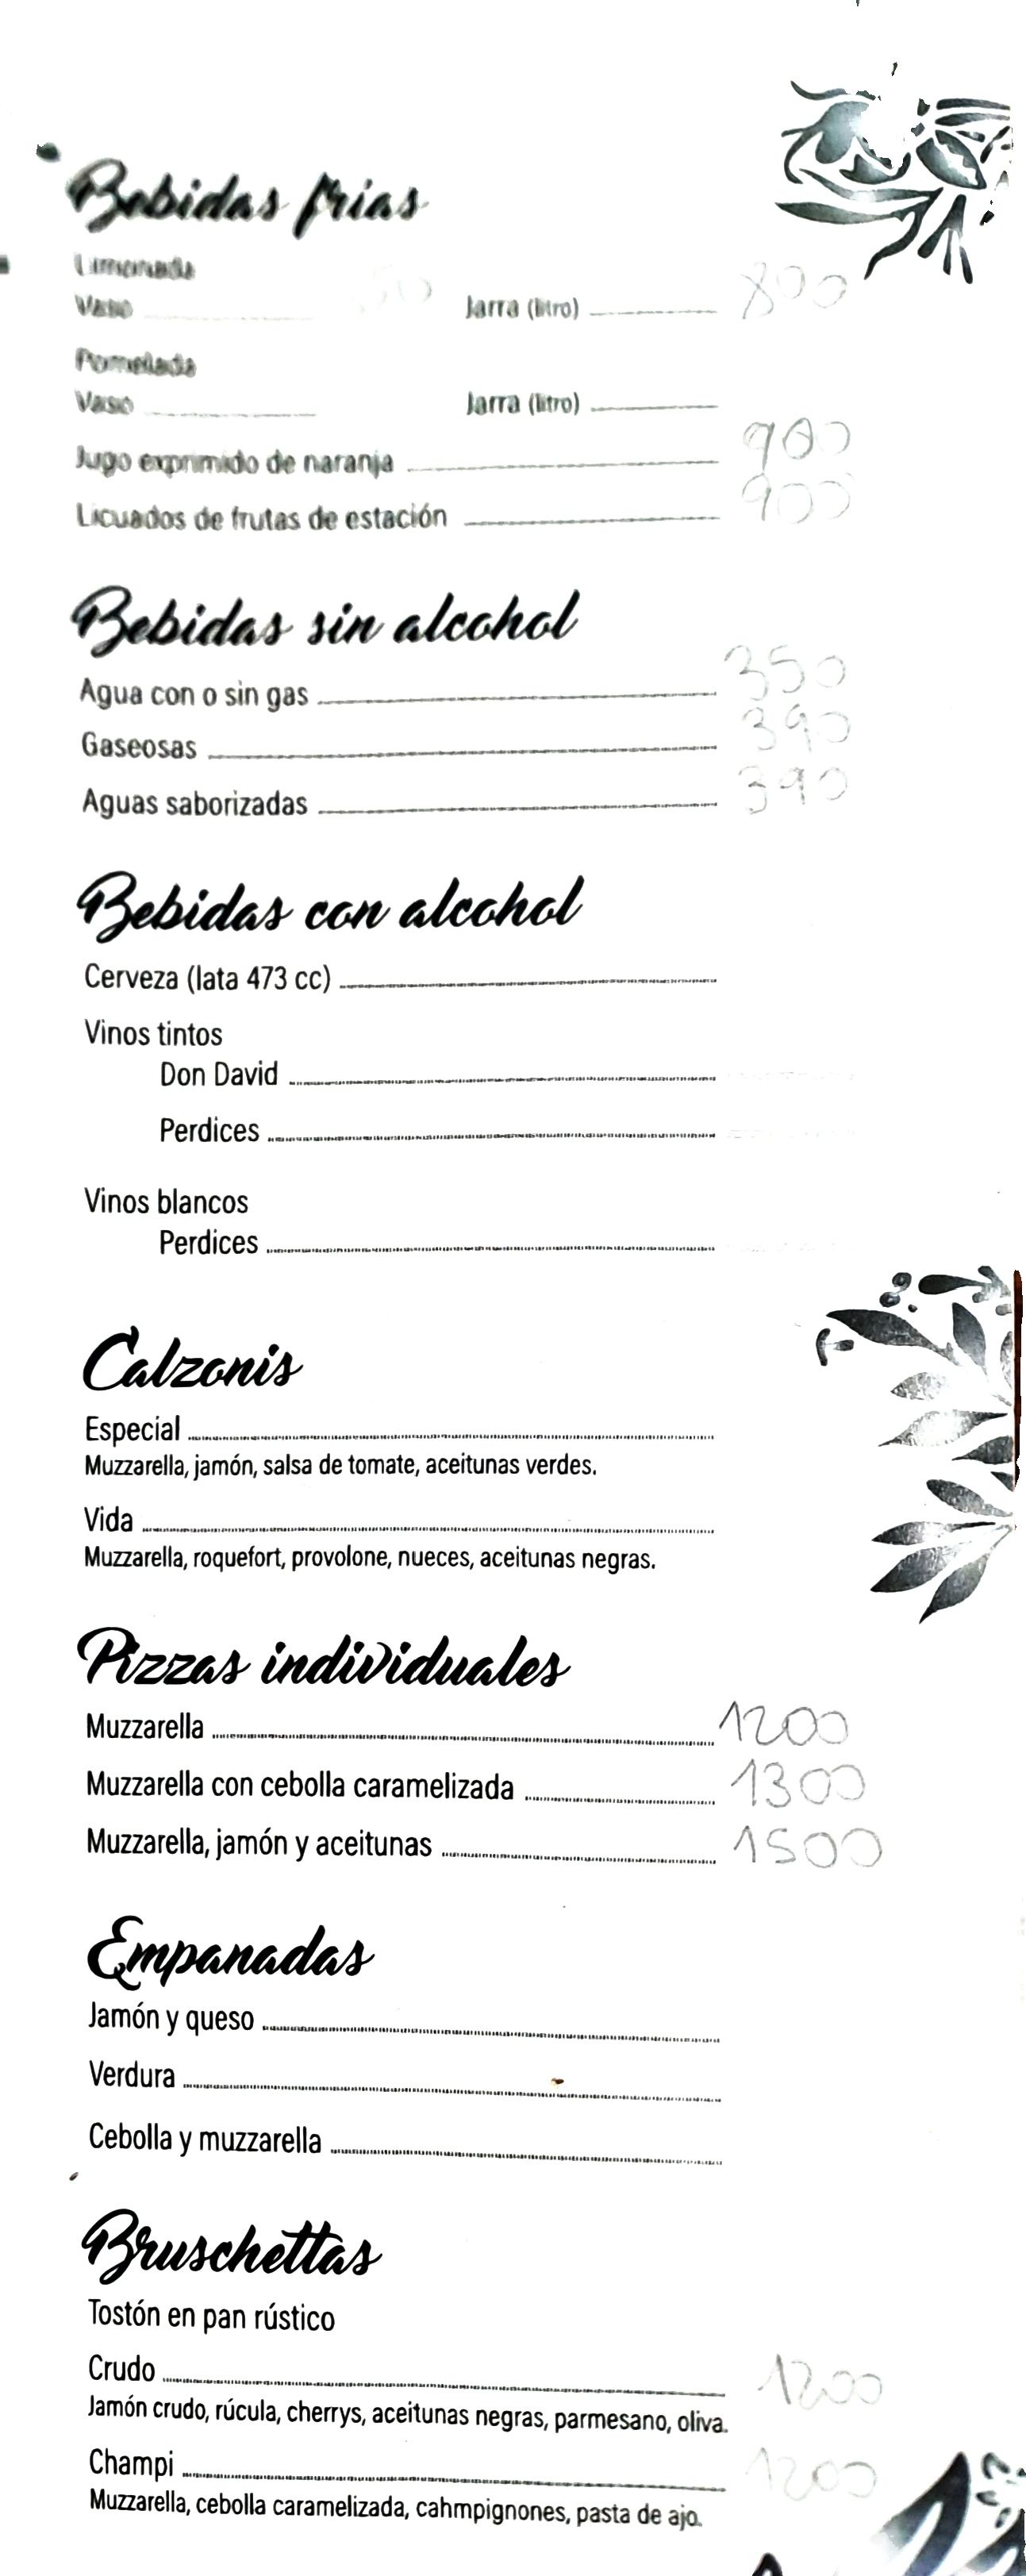 Bebidas frías
Limonada
Vaso Jarra (litro) 800
Pomelada
Vaso Jarra (litro)
Jugo exprimido de naranja 900
Licuados de frutas de estación 900
Bebidas sin alcohol
Agua con o sin gas 350
Gaseosas 390
Aguas saborizadas 390
Bebidas con alcohol
Cerveza (lata 473 cc)
Vinos tintos
Don David
Perdices
Vinos blancos
Perdices
Calzonis
Especial
Muzzarella, jamón, salsa de tomate, aceitunas verdes.
Vida
Muzzarella, roquefort, provolone, nueces, aceitunas negras.
Pizzas individuales
Muzzarella 1200
Muzzarella con cebolla caramelizada 1300
Muzzarella, jamón y aceitunas 1500
Empanadas
Jamón y queso
Verdura
Cebolla y muzzarella
Bruschettas
Tostón en pan rústico
Crudo 1200
Jamón crudo, rúcula, cherrys, aceitunas negras, parmesano, oliva.
Champi 1200
Muzzarella, cebolla caramelizada, cahmpignones, pasta de ajo.